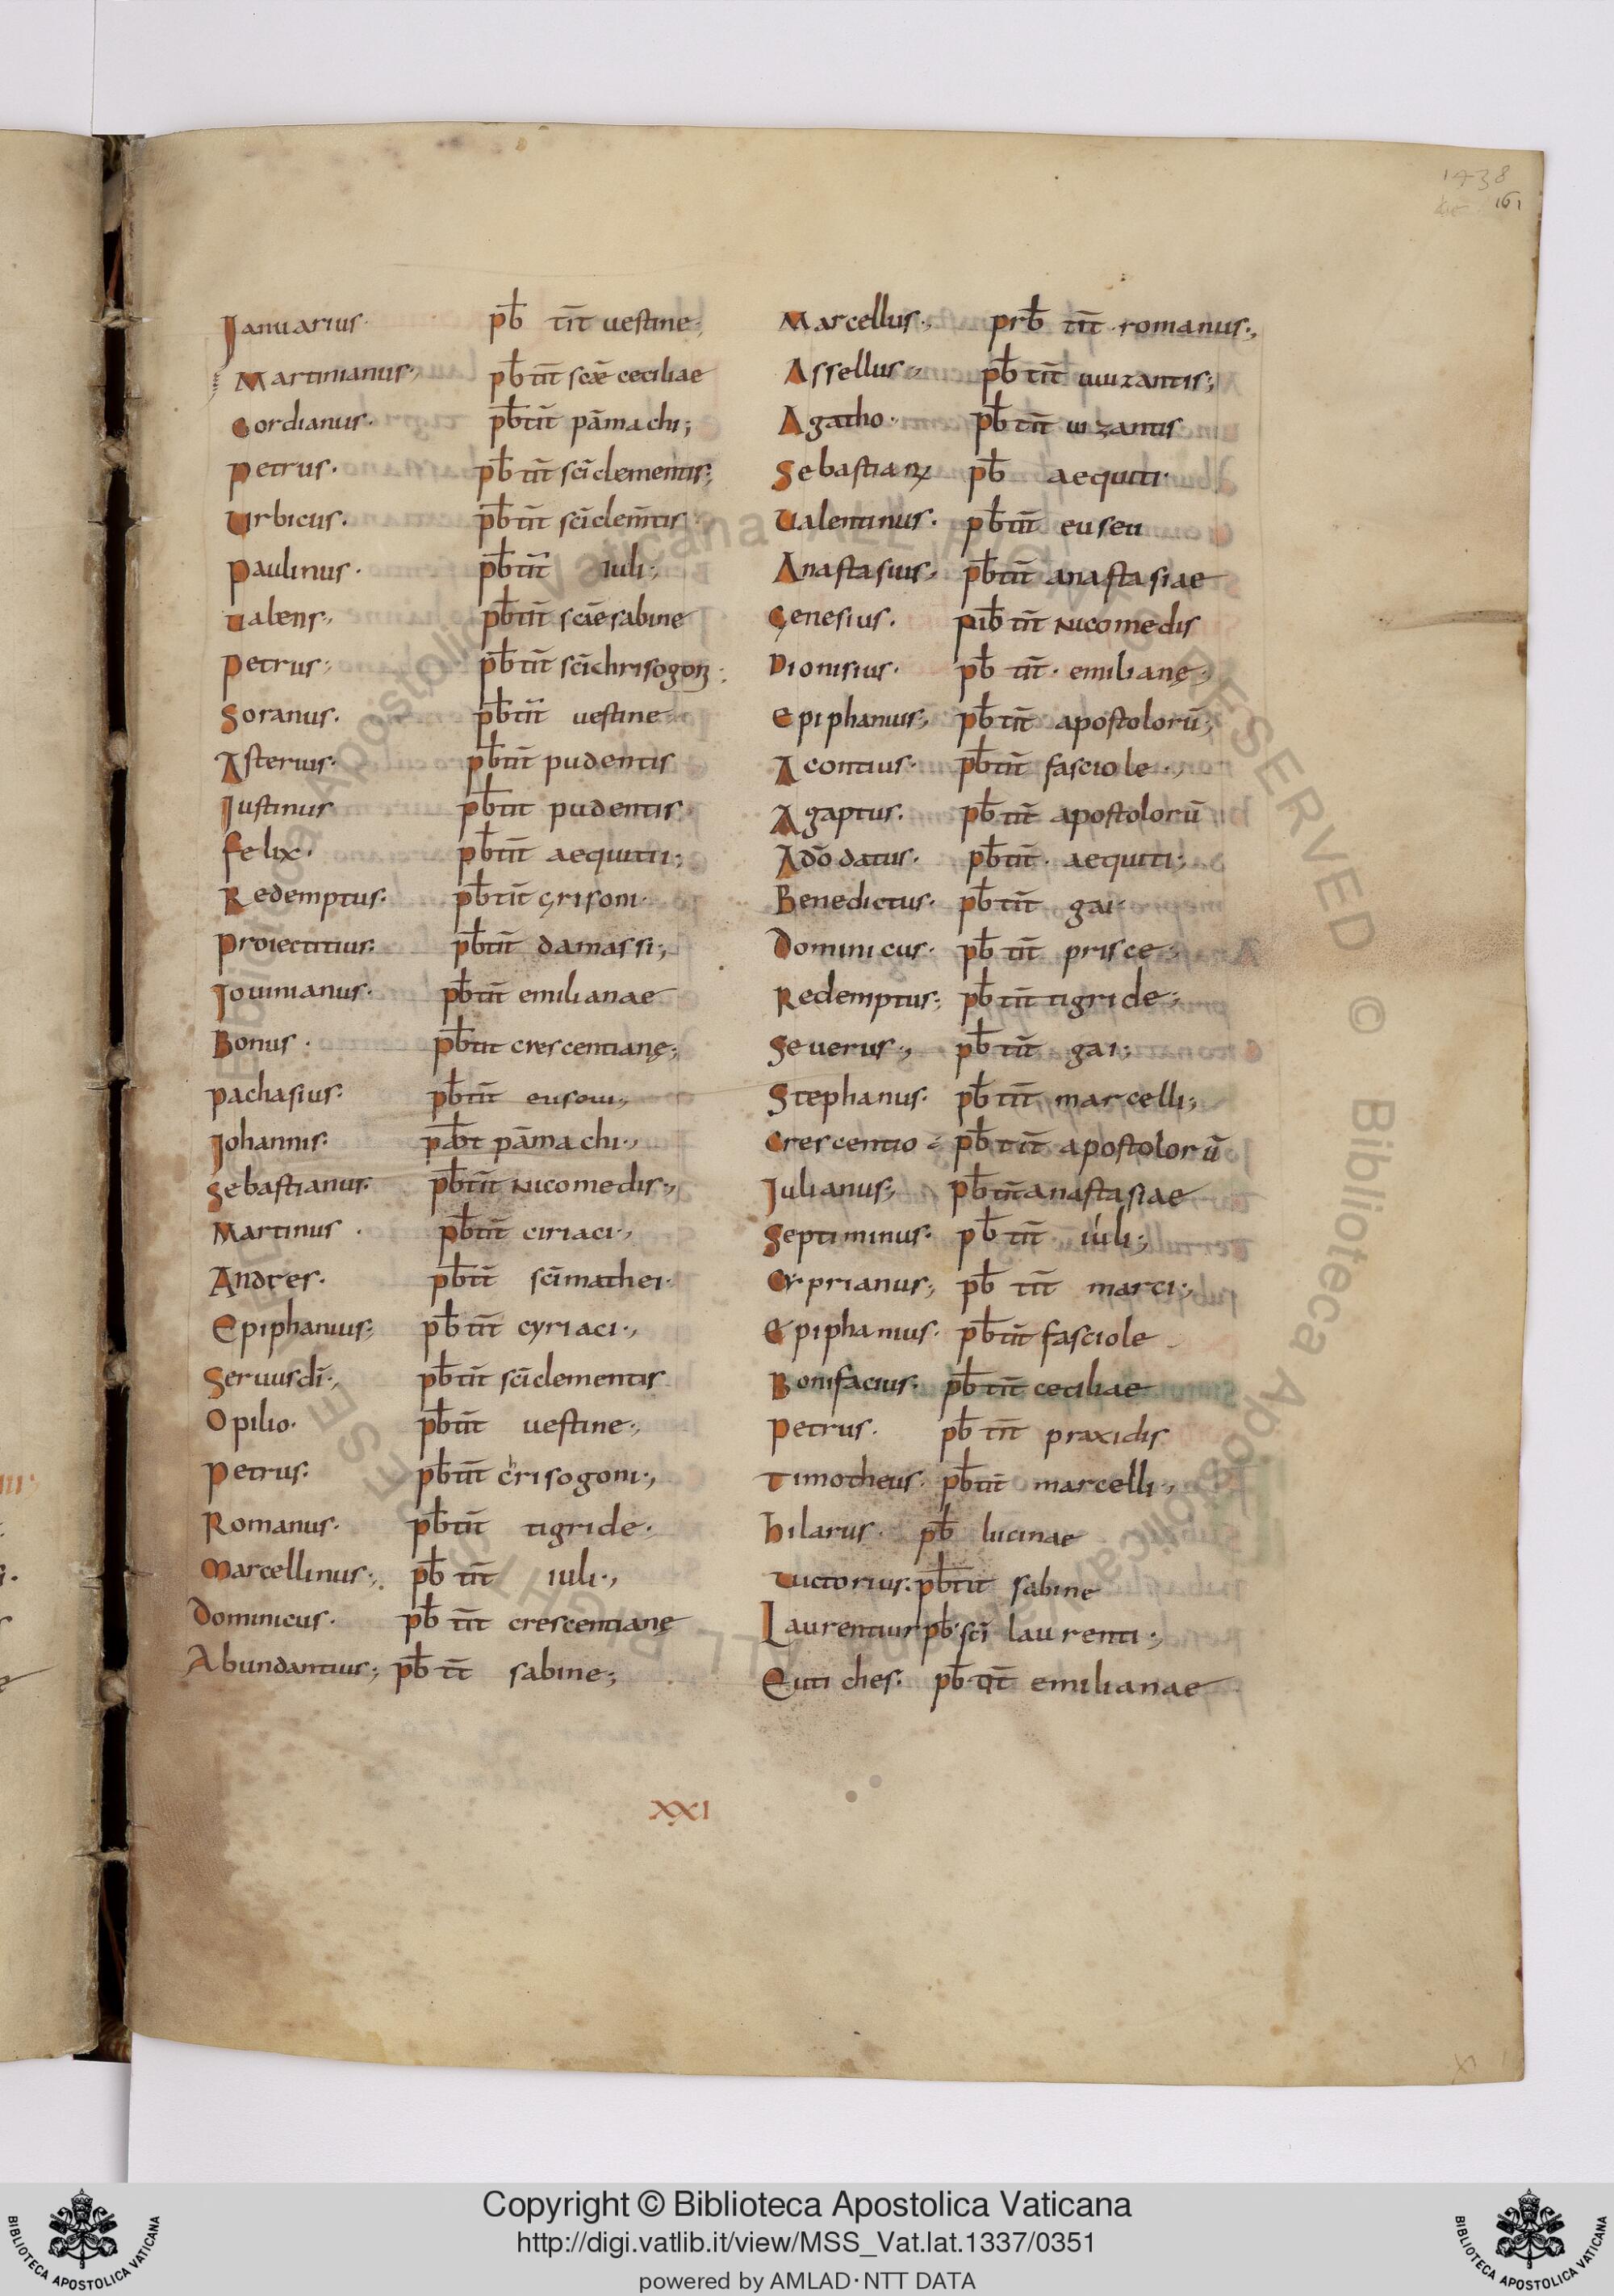 1438
161
Ianuarius· pb̄ tīt uestine·,
Martinianus·, pb̄ tīt scǣ ceciliae
Gordianus· pb̄ tīt pāmachi;
Petrus· pb̄ tīt scī clementis;
Urbicus· pb̄ tīt scī clem̄tis
Paulinus· pb̄ tīt iuli·,
Ualens·, pb̄ tīt scāe sabine
Petrus·, pb̄ tīt scī chrisogoni
Soranus· pb̄ tīt uestine
Asterius· pb̄ tīt pudentis
Iustinus pb̄ tīt pudentis·
Felix· pb̄ tīt aequitii;
Redemptus· pb̄ tīt grisoni·
Proiectitius· pb̄ tīt damassi;
Iouinianus· pb̄ tīt emilianae
Bonus· pb̄ tīt crescentianę;
Pachasius· pb̄ tīt
Iohannis· pāmachi·,
Sebastianus· pb̄ tīt nicomedis·,
Martinus· pb̄ tīt ciriaci·,
Andres· pb̄ tīt scī mathei·
Epiphanius; pb̄ tīt cyriaci·,
Seruusdī·, pb̄ tīt scī clementis
Opilio· pb̄ tīt uestine·,
Petrus· pb̄ tīt crisogoni·,
Romanus· pb̄ tīt tigride·
Marcellinus·, pb̄ tīt iuli·,
Dominicus· pb̄ tīt crescentianę
Abundantius; pb̄ tīt sabine;
Marcellus·, prb̄ tīt romanus·,
Assellus·, pb̄ tīt uiuzantis;
Agatho· pb̄ tīt uizantis
Sebastianus pb̄ aequiti·
Ualentinus· pb̄ tīt euseu
Anastasius· pb̄ tīt anastasiae
Genesius· tīt nicomedis
Dionisius· pb̄ tīt· emilianę·,
Epiphanius·, pb̄ tīt apostolorū;
Acontius· pb̄ tīt fasciole·,
Agaptus· pb̄ tīt apostolorū
Adōdatus· pb̄ tīt· aequiti·,
Benedictus· pb̄ tīt gai·
Dominicus· pb̄ tīt prisce·,
Redemptus; pb̄ tīt tigride·,
Seuerus·, pb̄ tīt gai;
Stephanus· pb̄ tīt marcelli;
Crescentio pb̄ tīt apostolorū
Iulianus·, pb̄ tīt anastasiae
Septiminus· pb̄ tīt iuli·,
Cyprianus; pb̄ tīt marci·,
Epiphanius· pb̄ tīt fasciole
Bonifacius· pb̄ tīt ceciliae
Petrus· pb̄ tīt praxidis
Timotheus· pb̄ tīt marcelli·,
Hilarus· pb̄ lucinae
Uictorius· pb̄ tīt sabine
Laurentius pb̄· scī laurenti·,
Eutiches· pb̄ tīt emilianae
XXI
Copyright © Biblioteca Apostolica Vaticana
http://digi.vatlib.it/view/MSS_Vat.lat.1337/0351
powered by AMLAD·NTT DATA